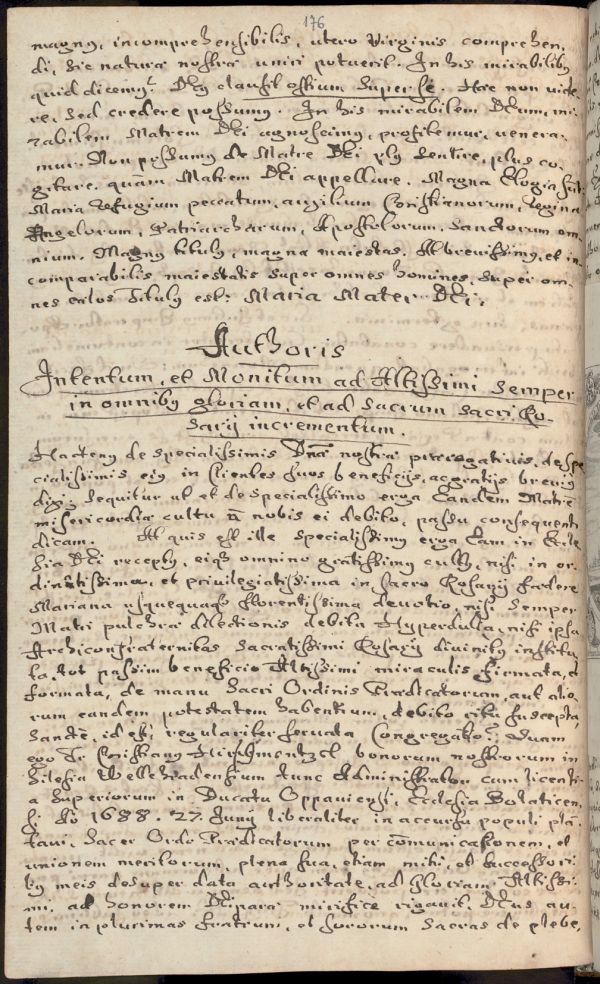 176
magnus, incomprehensibilis, utero Virginis comprehen,
di, sic naturæ nostræ uniri potuerit. In his mirabilibus
quid dicemus? Deus clausit ostium super se. Hæc non vide,
re, sed credere possumus. In his mirabilem Deum, mi,
rabilem Matrem Dei agnoscimus, profitemur, venera,
mur. Non possumus de Matre Dei plus sentire, plus co,
gitare, quàm Matrem Dei appellare. Magna Elogia sunt
Maria Refugium peccatum, auxilium Christianorum, Regina
Angelorum, Patriarcharum, Apostolorum, Sanctorum om,
nium. Magnus titulus, magna maiestas. At brevissimus, et in,
comparabilis maiestatis super omnes homines, super om,
nes cælos Titulus est: Maria Mater Dei.
Authoris
Intentum, et Monitum ad Altissimi semper
in omnibus gloriam, et ad Sacrum Sacri Ro,
sarij incrementum.
Hactenus de specialissimis Dnæ nostræ prærogativis, de spe
cialissimis eius in Clientes suos beneficijs, ac gratijs brevius
dixi; sequitur ut et de specialissimo erga Eandem Matrem
misericordiæ cultu à nobis ei debito, passu consequenti
dicam. At quis est ille specialissimus erga Eam in Eccle
sia Dei receptus, eiq omnino gratissimus cultus, nisi in or,
dinatissima, et privilegiatissima in Sacro Rosarij fœdere
Mariana usquequaq florentissima devotio, nisi semper
Matri pulchræ dilectionis debita Hyperdulia, nisi ipsa
Archiconfraternitas Sacratissimi Rosarij divinitus institu,
ta, tot passim beneficio Altissimi miraculis firmata, et
formata, de manu Sacri Ordinis Prædicatorum, aut alio,
rum eandem potestatem habentium, debito ritu suscepta,
Sanctè, id est, regulariter servata Congregatio? Quam
ego Fr Christianus Hirschmentzel bonorum nostrorum in
Silesia Wellehradensium tunc Administrator cum licenti,
a Superiorum in Ducatu Oppaviensi, Ecclesia Bolaticen,
si Ao 1688. 27. Junij liberaliter in accursu populi plan
tavi, Sacer Ordo Prædicatorum per communicationem, et
unionem meritorum, plena sua, etiam mihi, et successori,
bus meis desuper data authoritate, ad Gloriam Altissi,
mi, ad honorem Deiparæ mirifice rigavit. Deus au,
tem in plurimas fratrum, et sororum sacras de plebe,